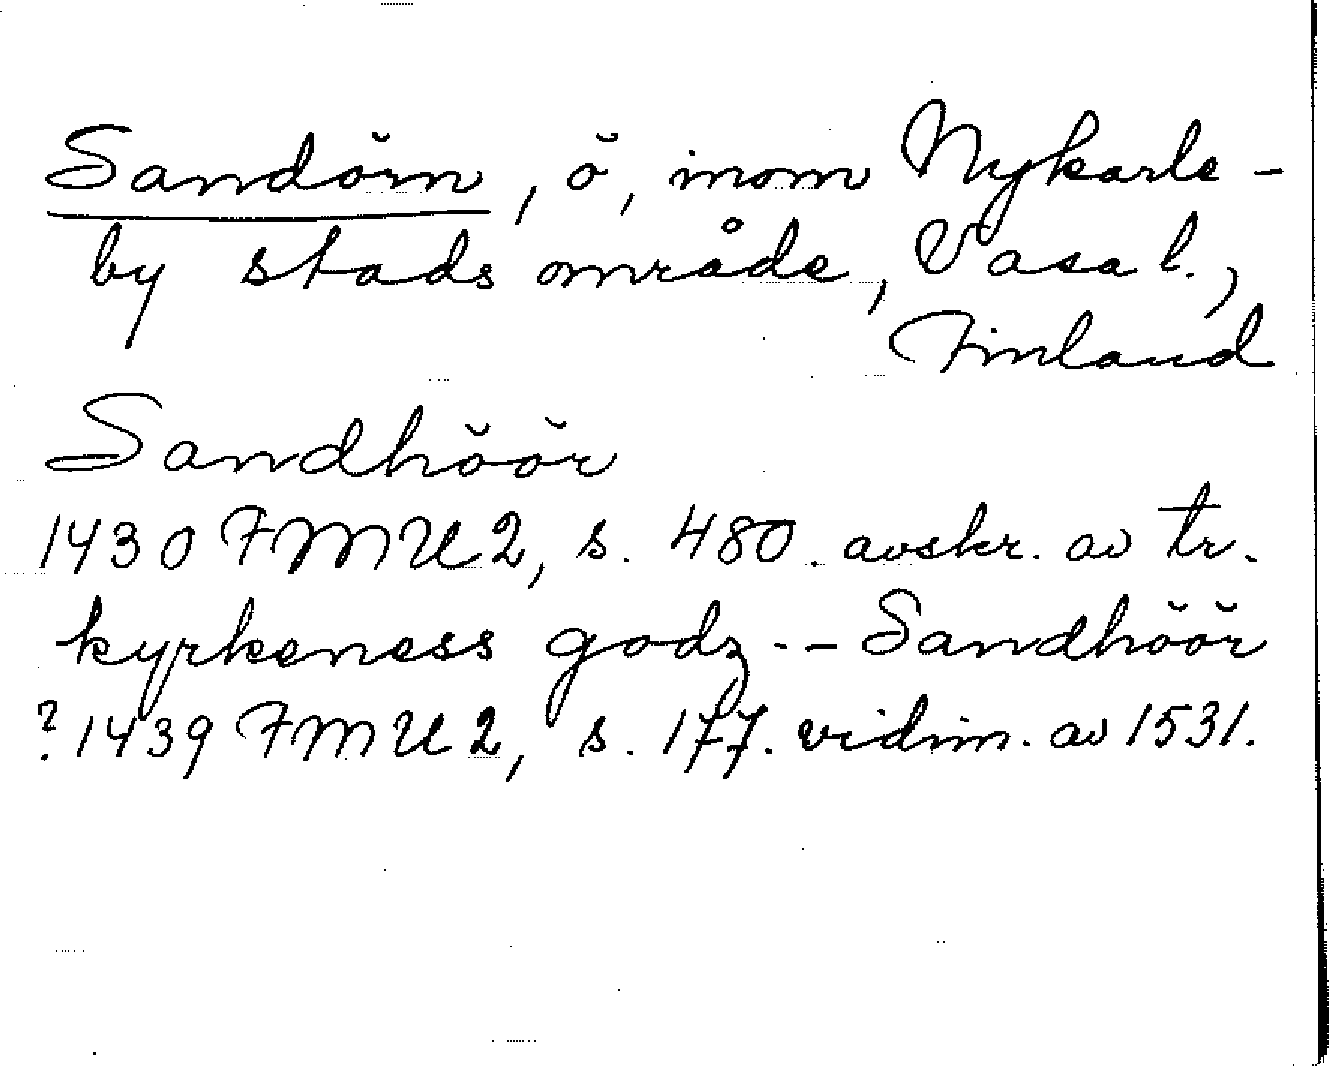 Sandörn, ö, inom Nykarle-
by stads område, Vasa l.,
Finland
Sandhöör
1430 FMU 2, s. 480. avskr. av tr.
kyrkeness godz -- Sandhöör
? 1439 FMU 2, s. 177. vidim. av 1531.